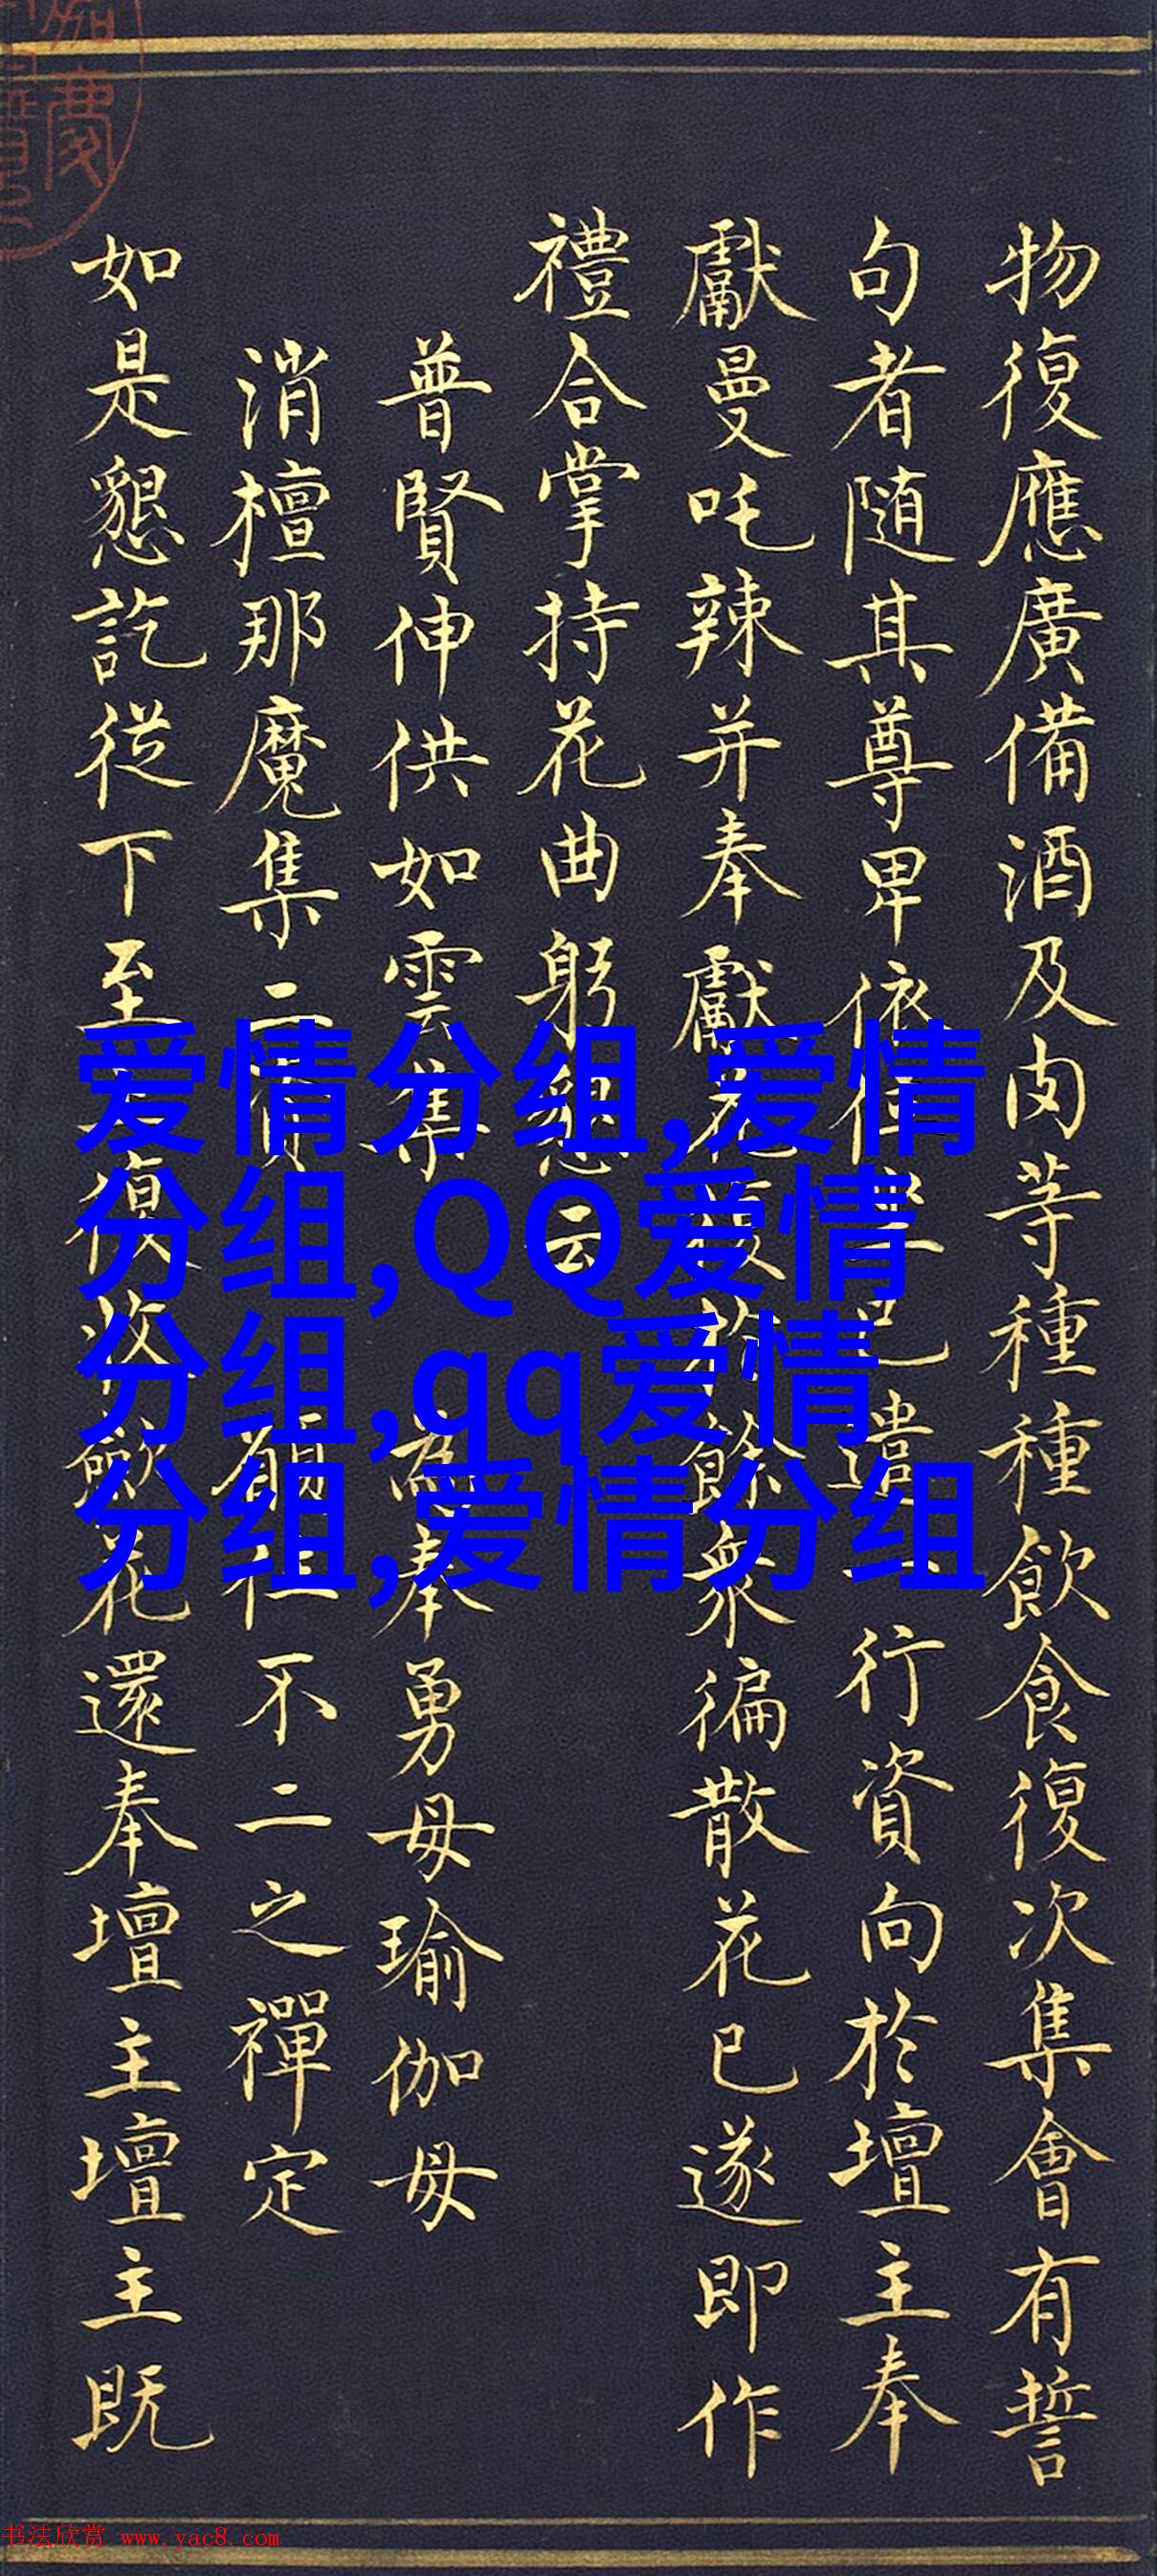 物復應廣備酒及肉等種種飲食復次集會有誓
句者随其尊卑依位坐已遣一行資向於壇主奉
獻曼吒辣并奉獻花復於餘衆徧散花已遂即作
禮合掌持花曲躬懇云
普賢伸供如雲集 為奉勇母瑜伽母
消檀那魔集二資 願住不二之禪定
如是懇訖從下至上復收歛花還奉壇主壇主既
爱情分组,爱情
分组,QQ爱情
分组,qq爱情
分组,爱情分组
书法欣赏 www.yac8.com